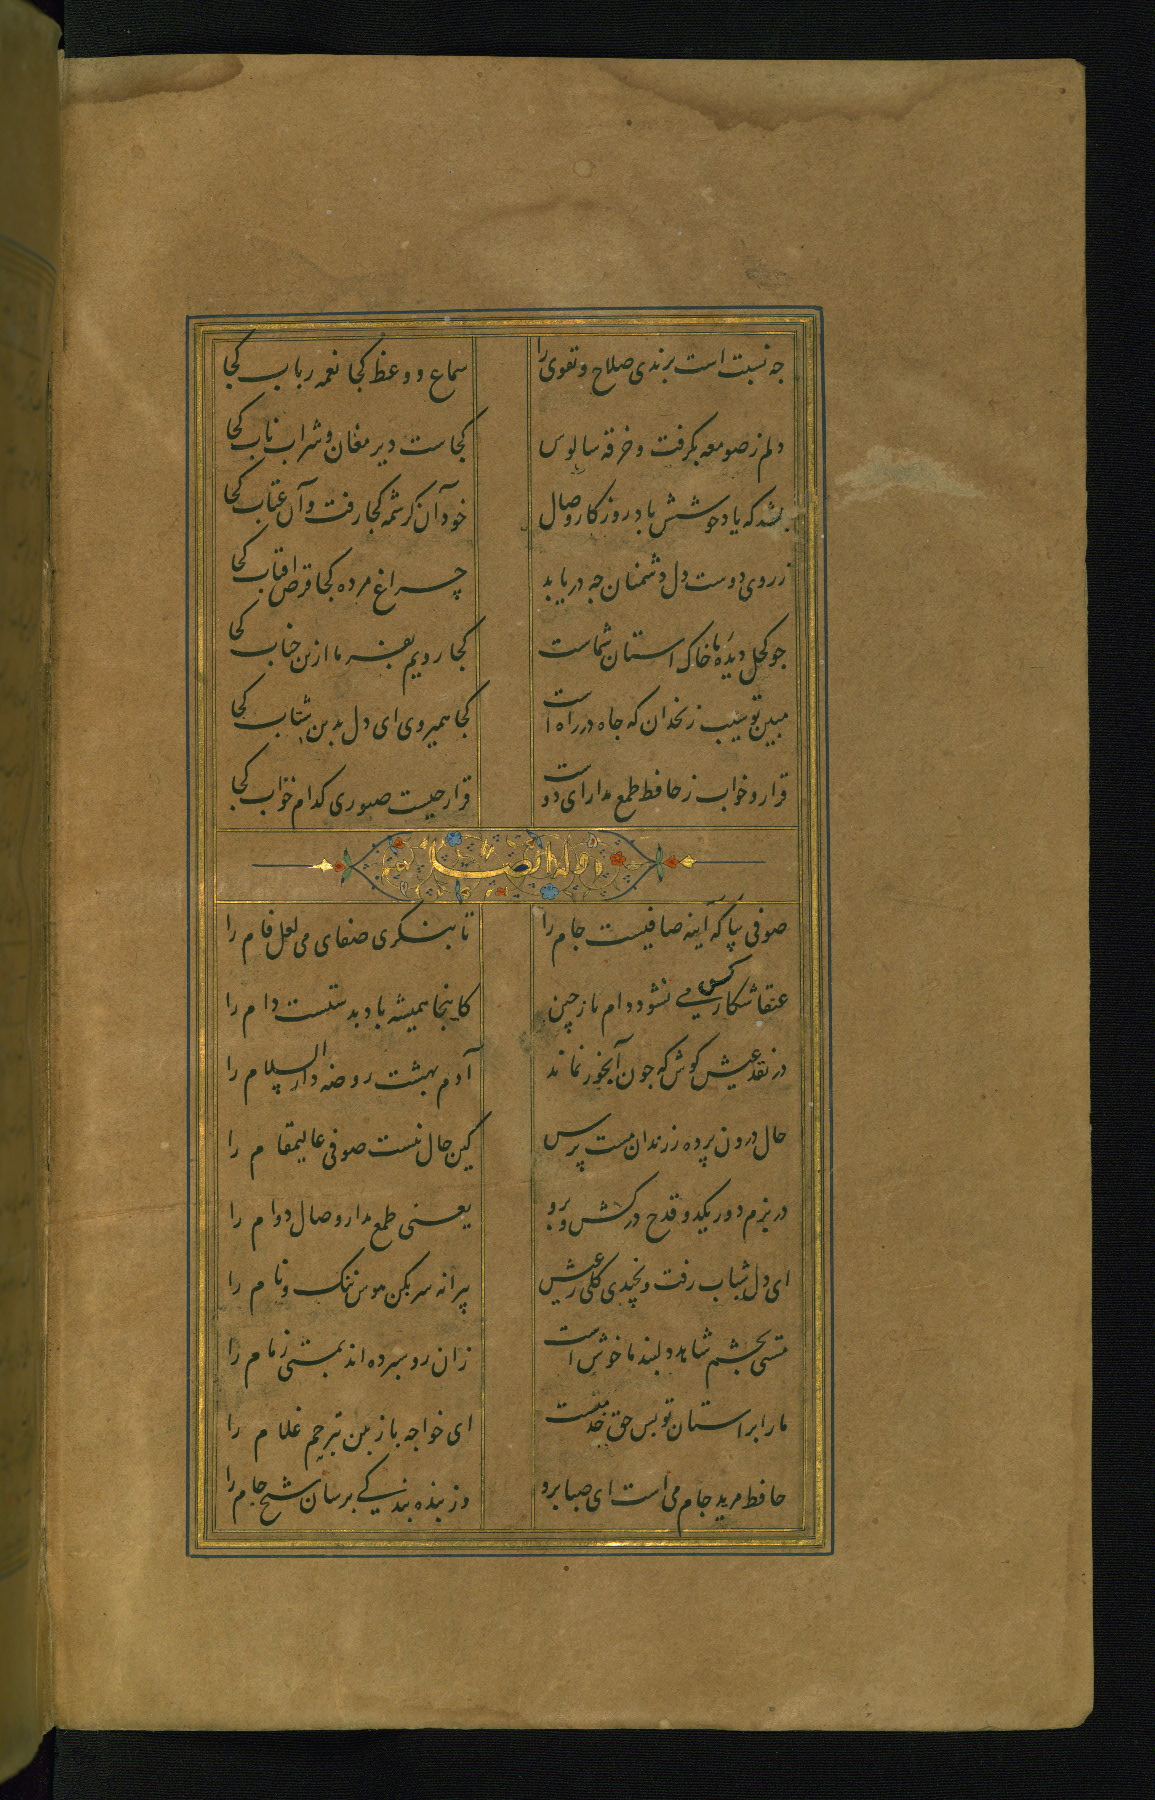 چه نسبت است برندی صلاح و تقوی را سماع و وعظ کجا نغمه رباب کجا
دلم ز صومعه بگرفت و خرقه سالوس کجاست دیر مغان و شراب ناب کجا
بشد که یاد خوشش باد روزکار وصال خود آن کرشمه کجا رفت و آن عتاب کجا
ز روی دوست دل دشمنان چه دریابد چراغ مرده کجا قرص افتاب کجا
چو کحل دیده ما خاک استان شماست کجا رویم بفرما ازین جناب کجا
مبین تو سیب زنخدان که چاه در راه است کجا همیروی ای دل بدین شتاب کجا
قرار و خواب ز حافظ طمع مدار ای دوست قرار چیست صبوری کدام خواب کجا
وله ایضا
صوفی بیا که آینه صافیست جام را تا بنگری صفای می لعل فام را
عنقا شکار کس می نشود دام باز چین کاینجا همیشه باد بدستست دام را
در نقد عیش کوش که چون آبخور نماند آدم بهشت روضه دار السلام را
حال درون پرده ز رندان مست پرس کین حال نیست صوفی عالیمقام را
در بزم دور یکدو قدح درکش و برو یعنی طمع مدار وصال دوام را
ای دل شباب رفت و نچیدی کلی ز عیش پیرانه سر بکن هوس ننک و نام را
مستی بچشم شاهد دلبند ما خوش است زان رو سپرده اند بمستی زمام را
ما را بر استان تو بس حق خدمتست ای خواجه باز بین بترحم غلام را
حافظ مرید جام می است ای صبا برو وز بنده بندکی برسان شیخ جام را